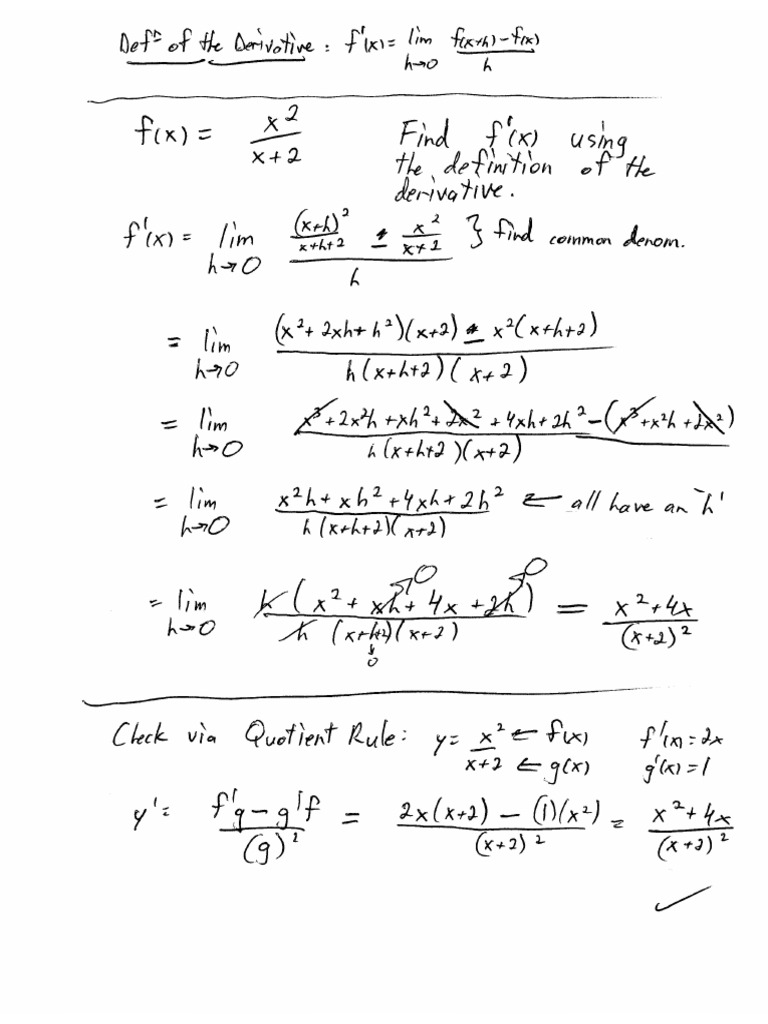 Defⁿ of the Derivative: f'(x) = lim h→0 (f(x+h) - f(x))/h
f(x) = x²/(x+2) Find f'(x) using
the definition of the
derivative.
f'(x) = lim h→0 ((x+h)²/(x+h+2) - x²/(x+2))/h } find common denom.
= lim h→0 ((x²+2xh+h²)(x+2) - x²(x+h+2))/(h(x+h+2)(x+2))
= lim h→0 (x³+2x²h+xh²+2x²+4xh+2h²-(x³+x²h+2x²))/(h(x+h+2)(x+2))
= lim h→0 (x²h+xh²+4xh+2h²)/(h(x+h+2)(x+2)) ← all have an 'h'
= lim h→0 h(x²+xh→0+4x+2h→0)/(h(x+h→0+2)(x+2)) = (x²+4x)/(x+2)²
Check via Quotient Rule: y = x²/(x+2) ← f(x) ← g(x) f'(x)=2x g'(x)=1
y' = (f'g - g'f)/(g)² = (2x(x+2) - (1)(x²))/(x+2)² = (x²+4x)/(x+2)²
✓